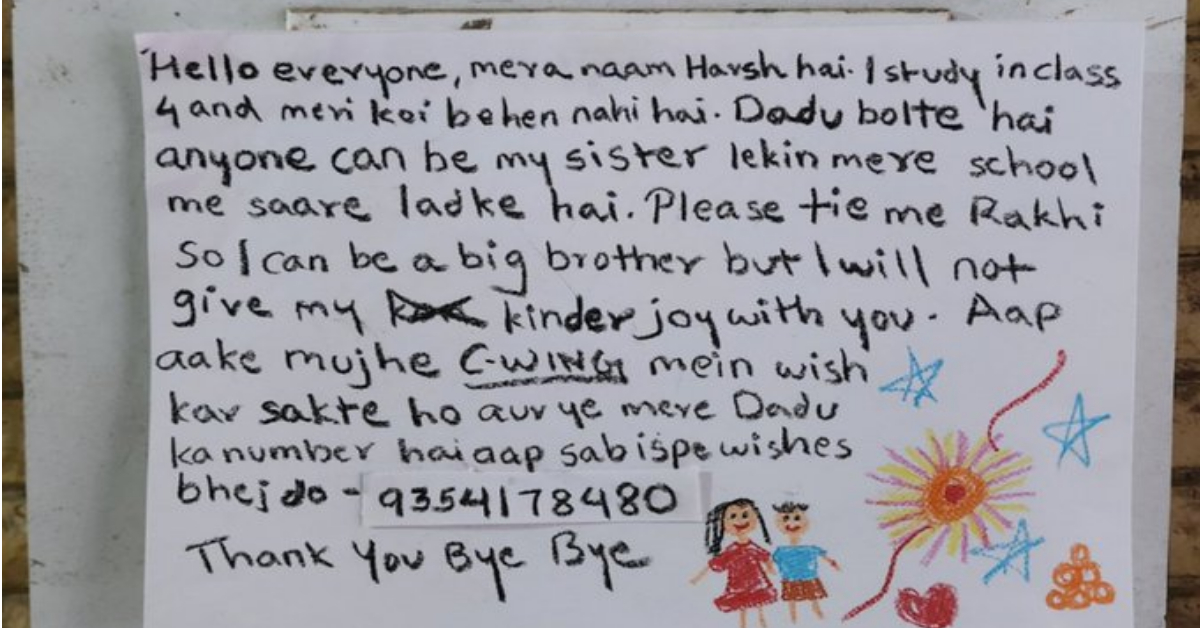 Hello everyone, mera naam Harsh hai. I study in class
4 and meri koi behen nahi hai. Dadu bolte hai
anyone can be my sister lekin mere school
me saare ladke hai. Please tie me Rakhi
So I can be a big brother but I will not
give my kinder joy with you. Aap
aake mujhe C-WING mein wish
kar sakte ho aur ye mere Dadu
ka number hai aap sab ispe wishes
bhej do - 9354178480
Thank You Bye Bye